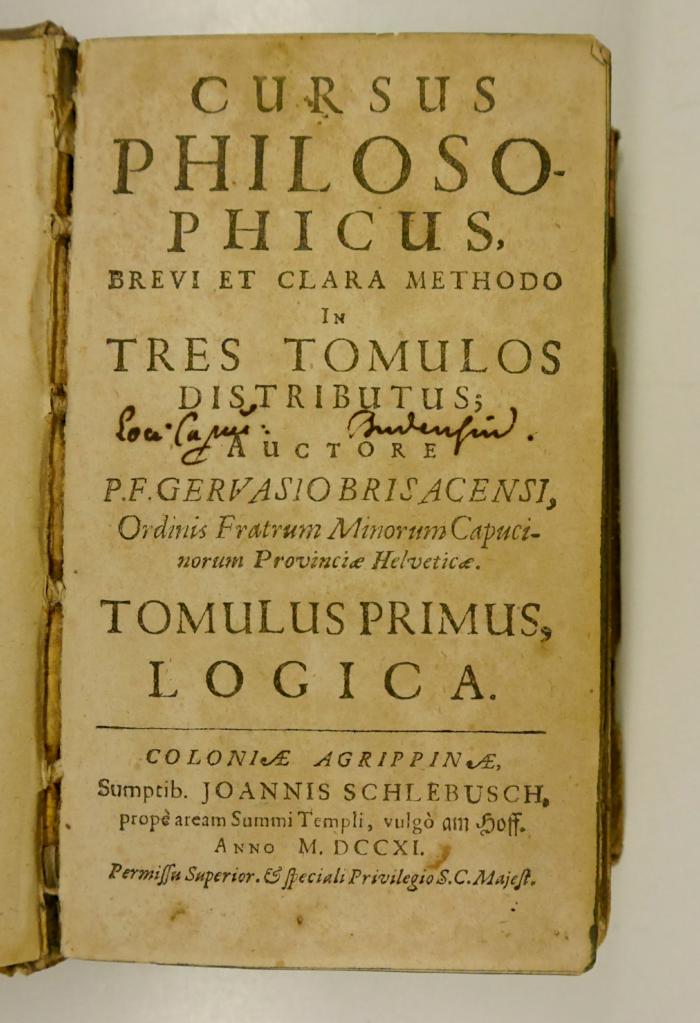 CURSUS
PHILOSO-
PHICUS,
BREVI ET CLARA METHODO
IN
TRES TOMULOS
DISTRIBUTUS;
AUCTORE
P.F. GERVASIO BRISACENSI,
Ordinis Fratrum Minorum Capuci-
norum Provinciæ Helveticæ.
TOMULUS PRIMUS,
LOGICA.
COLONIÆ AGRIPPINÆ,
Sumptib. JOANNIS SCHLEBUSCH,
propè aream Summi Templi, vulgò am Hoff.
ANNO M. DCCXI.
Permiſſu Superior. & ſpeciali Privilegio S.C.Majeſt.